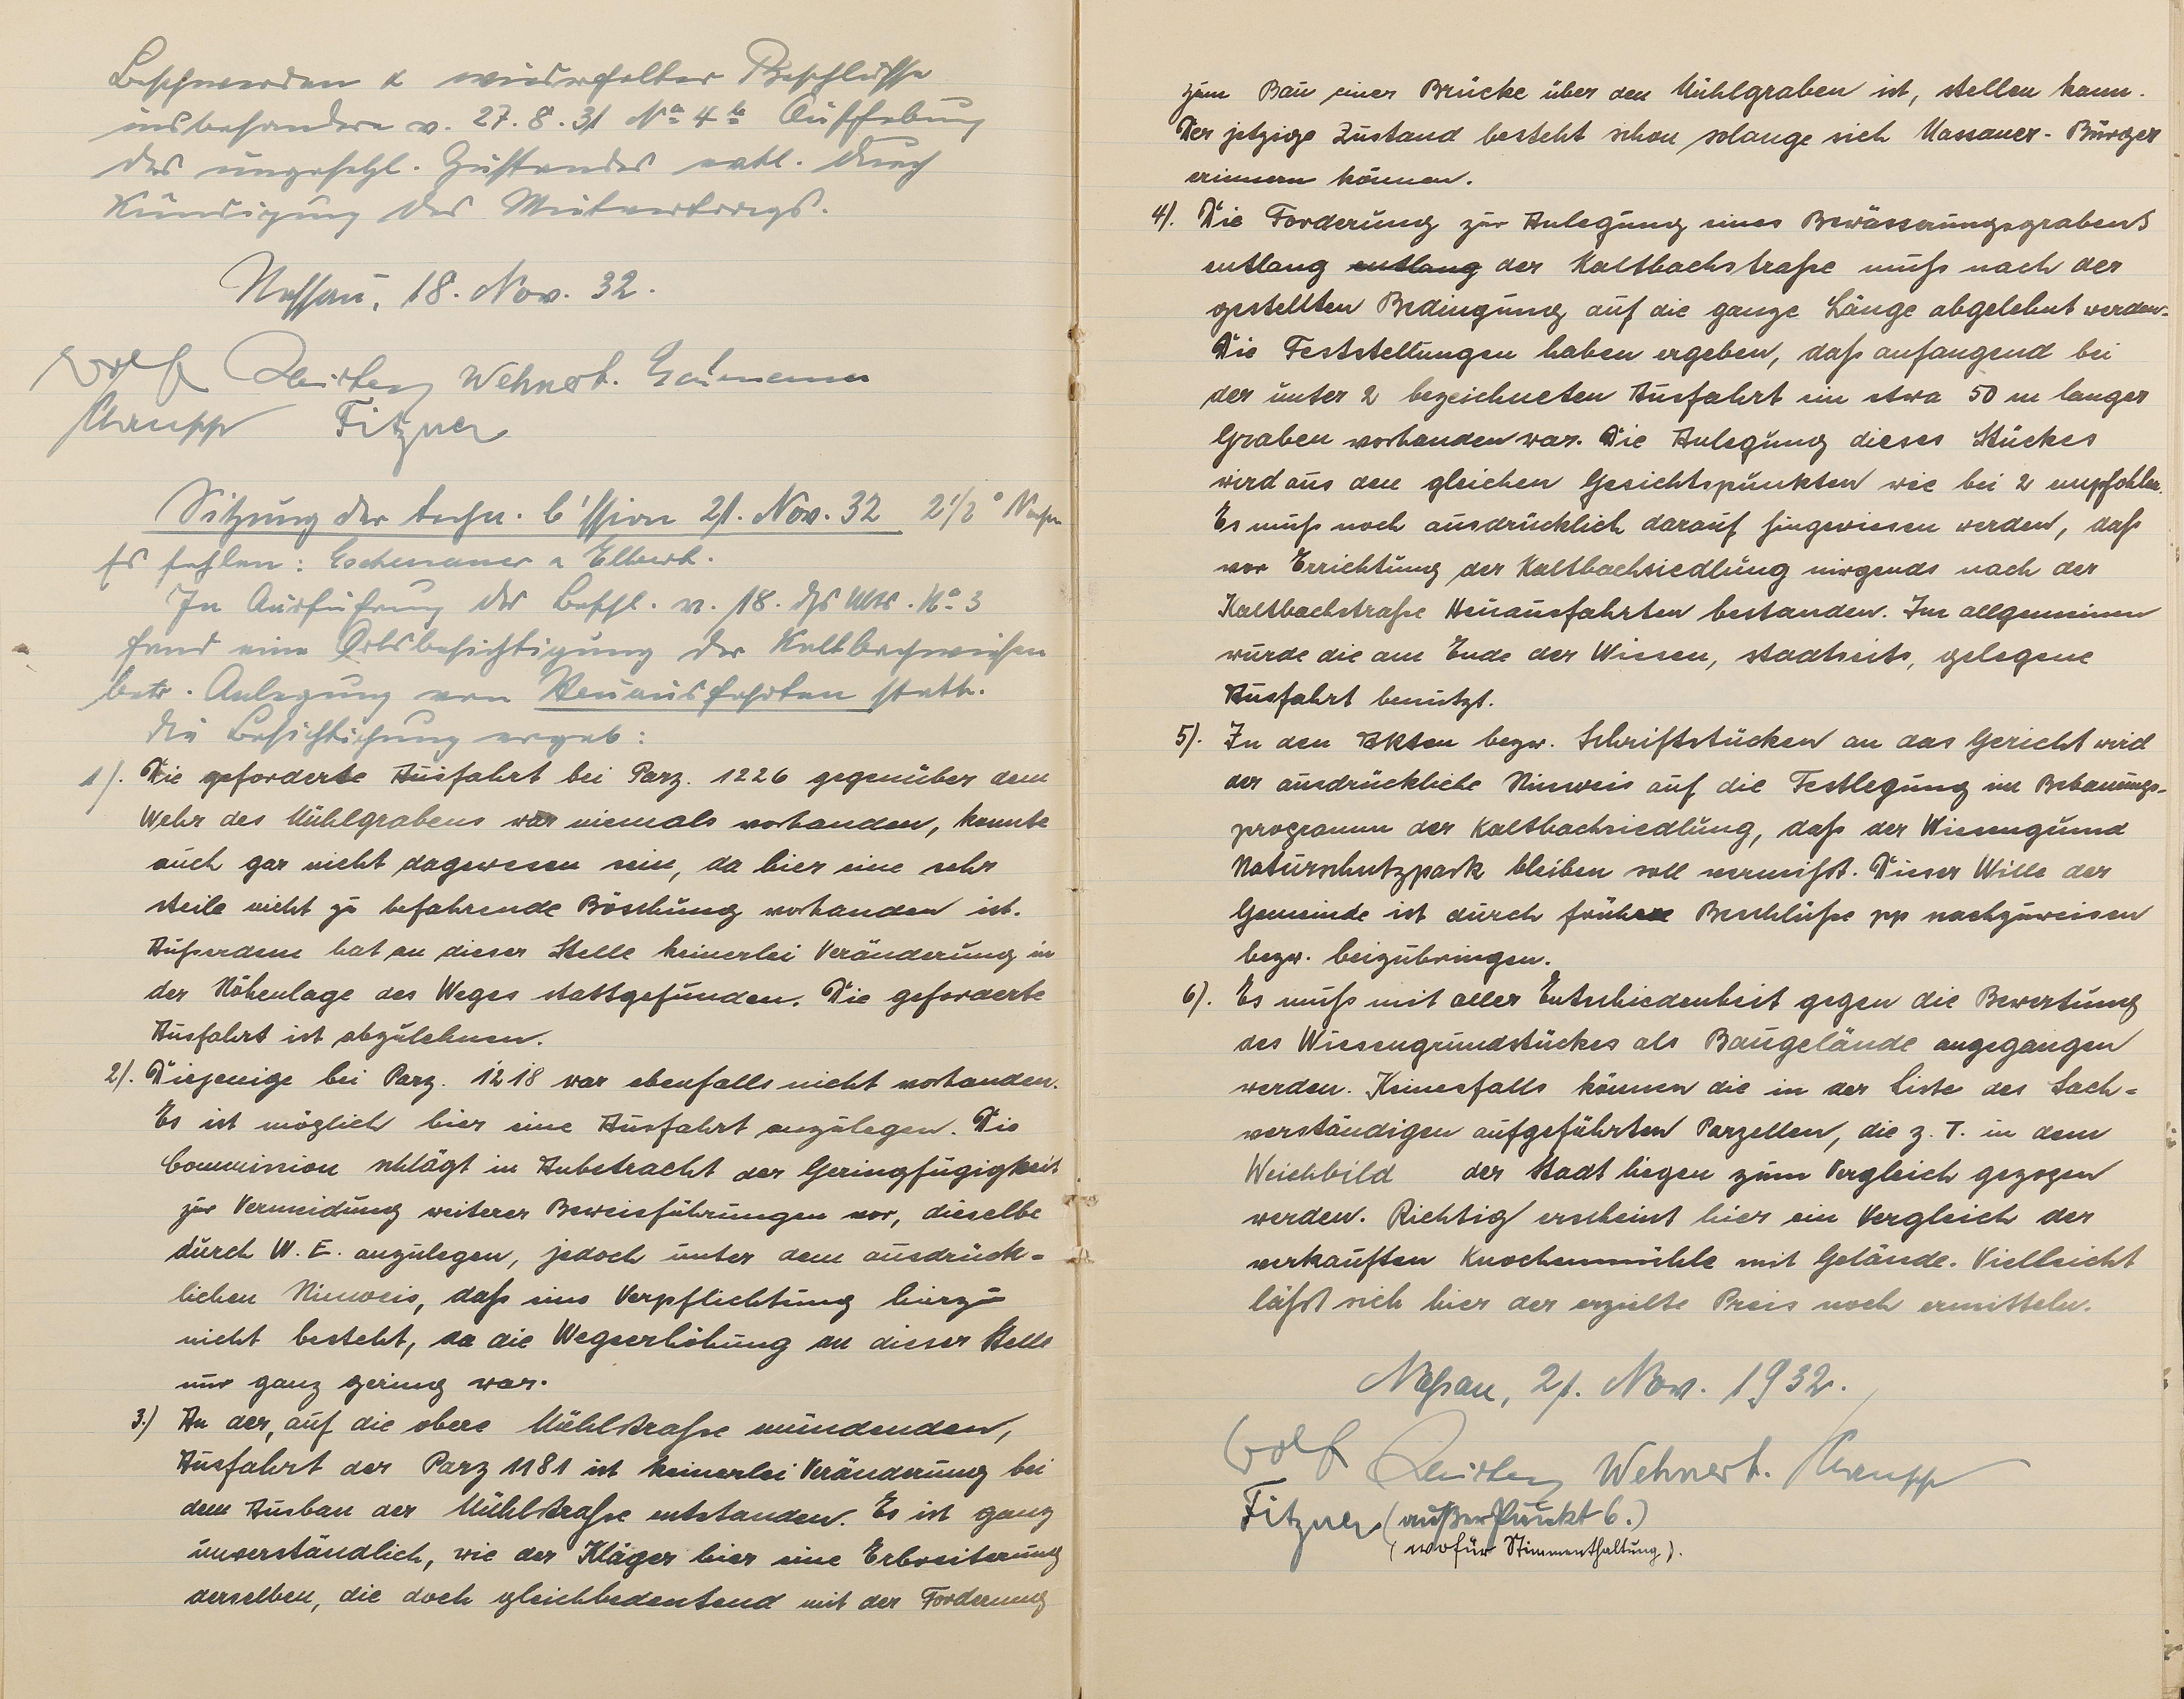 Beschwerden & wiederholter Beschlüsse
insbesondere v. 27.8.31 No 4 b Aufhebung
des ungesetzl. Zustandes evtl. durch
Kündigung des Mietvertrags.
Nassau, 18. Nov. 32.
Wolf Wehnert.
Fitzner
Sitzung der techn. C'ssion 21. Nov. 32 2 1/2 ° Nachm
Es fehlen: Eschenauer u Elbert.
In Ausführung des Beschl. v. 18. ds Mts. No 3
fand eine Ortsbesichtigung der Kaltbachwiesen
betr. Anlegung von Heuausfahrten statt.
Die Besichtigung ergab:
1). Die geforderte Ausfahrt bei Parz. 1226 gegenüber dem
Wehr des Mühlgrabens war niemals vorhanden, konnte
auch gar nicht dagewesen sein, da hier eine sehr
steile nicht zu befahrende Böschung vorhanden ist.
Außerdem hat an dieser Stelle keinerlei Veränderung in
der Höhenlage des Weges stattgefunden. Die geforderte
Ausfahrt ist abzulehnen.
2). Diejenige bei Parz. 1218 war ebenfalls nicht vorhanden.
Es ist möglich hier eine Ausfahrt anzulegen. Die
Commission schlägt in Anbetracht der Geringfügigkeit
zur Vermeidung weiterer Beweisführungen vor, dieselbe
durch W. E. anzulegen, jedoch unter dem ausdrück=
lichen Hinweis, daß eine Verpflichtung hierzu
nicht besteht, da die Wegeerhöhung an dieser Stelle
nur ganz gering war.
3.) An der, auf die obere Mühlstraße mündenden,
Ausfahrt der Parz 1181 ist keinerlei Veränderung bei
dem Ausbau der Mühlstraße entstanden. Es ist ganz
unverständlich, wie der Kläger hier eine Erbreiterung
derselben, die doch gleichbedeutend mit der Forderung
zum Bau einer Brücke über den Mühlgraben ist, stellen kann.
Der jetzige Zustand besteht schon solange sich Nassauer-Bürger
erinnern können.
4). Die Forderung zur Anlegung eines Bewässerungsgrabens
entlang entlang der Kaltbachstraße muß nach der
gestellten Bedingung auf die ganze Länge abgelehnt werden.
Die Feststellungen haben ergeben, daß anfangend bei
der unter 2 bezeichneten Ausfahrt ein etwa 50 m langer
Graben vorhanden war. Die Anlegung dieses Stückes
wird aus den gleichen Gesichtspunkten wie bei 2 empfohlen.
Es muß noch ausdrücklich darauf hingewiesen werden, daß
vor Errichtung der Kaltbachsiedlung nirgends nach der
Kaltbachstraße Heuausfahrten bestanden. Im allgemeinen
wurde die am Ende der Wiesen, stadtseits, gelegene
Ausfahrt benutzt.
5). In den Akten bezw. Schriftstücken an das Gericht wird
der ausdrückliche Hinweis auf die Festlegung im Bebauungs-
programm der Kaltbachsiedlung, daß der Wiesengund
Naturschutzpark bleiben soll vermißt. Dieser Wille der
Gemeinde ist durch frühere Beschlüße pp nachzuweisen
bezw. beizubringen.
6). Es muß mit aller Entschiedenheit gegen die Bewertung
des Wiesengrundstückes als Baugelände angegangen
werden. Keinesfalls können die in der Liste des Sach=
verständigen aufgeführten Parzellen, die z. T. in dem
Weichbild der Stadt liegen zum Vergleich gezogen
werden. Richtig erscheint hier ein Vergleich der
verkauften Knochenmühle mit Gelände. Vielleicht
läßt sich hier der erzielte Preis noch ermitteln.
Nassau, 21. Nov. 1932.
Wolf Wehnert.
Fitzner (außer Punkt 6.)
(wofür Stimmenthaltung).